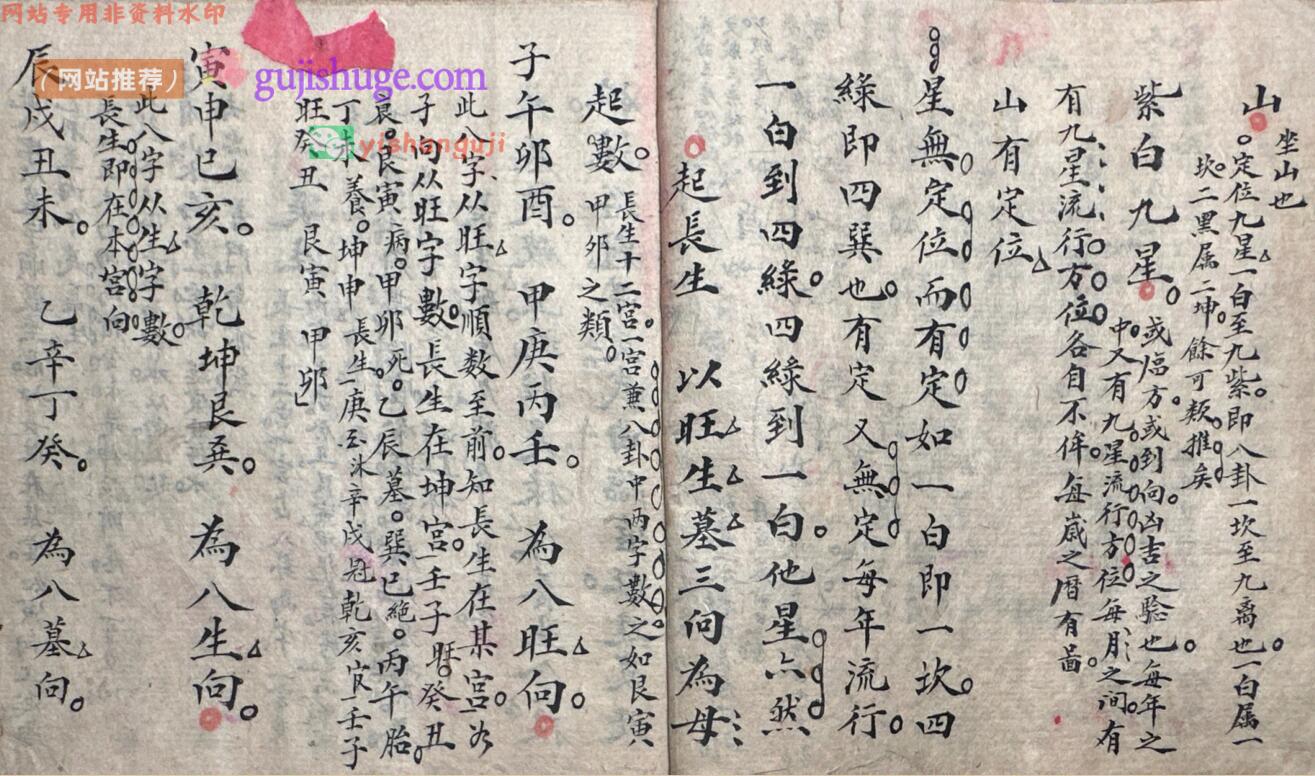 网站专用非资料水印
(网站推荐)
gujishuge.com
yishanguji
山
坐山也
定位九星一白至九紫即八卦一坎至九离也一白属一
坎二黑属二坤餘可类推矣
紫白九星
或临方或到向凶吉之驗也每年之
中又有九星流行方位每月之间有
有九星流行方位各自不侔每歲之曆有啚
山有定位
星無定位而有定如一白即一坎四
綠即四巽也有定又無定每年流行
一白到四綠四綠到一白他星亦然
起長生 以旺生墓三向為母
起數
長生十二宮一宮兼八卦中两字數之如艮寅
甲卯之類
子午卯酉 甲庚丙壬 為八旺向
此八字从旺字順数至前知長生在某宮如
子向从旺字數長生在坤宮壬子旺癸丑
衰艮寅病甲卯死乙辰墓巽巳絶丙午胎
丁未養坤申長生庚酉沐辛戌冠乾亥官壬子
旺癸丑 艮寅 甲卯
寅申巳亥 乾坤艮巽 為八生向
此八字从生字數
長生即在本宮向
辰戌丑未 乙辛丁癸 為八墓向